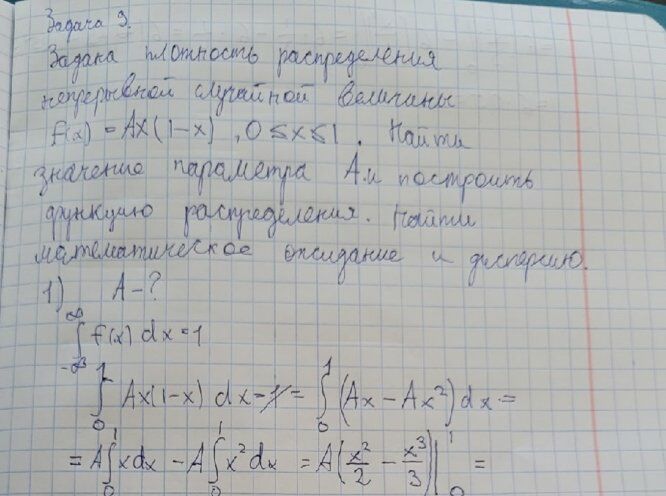 Задача 9.
Задана плотность распределения
непрерывной случайной величины
f(x) = Ax(1-x), 0 ≤ x ≤ 1. Найти
значение параметра A и построить
функцию распределения. Найти
математическое ожидание и дисперсию.
1) A - ?
∫_{-∞}^{∞} f(x) dx = 1
∫_0^1 Ax(1-x) dx = ∫_0^1 (Ax - Ax²) dx =
= A∫_0^1 x dx - A∫_0^1 x² dx = A(x²/2 - x³/3)|_0^1 =